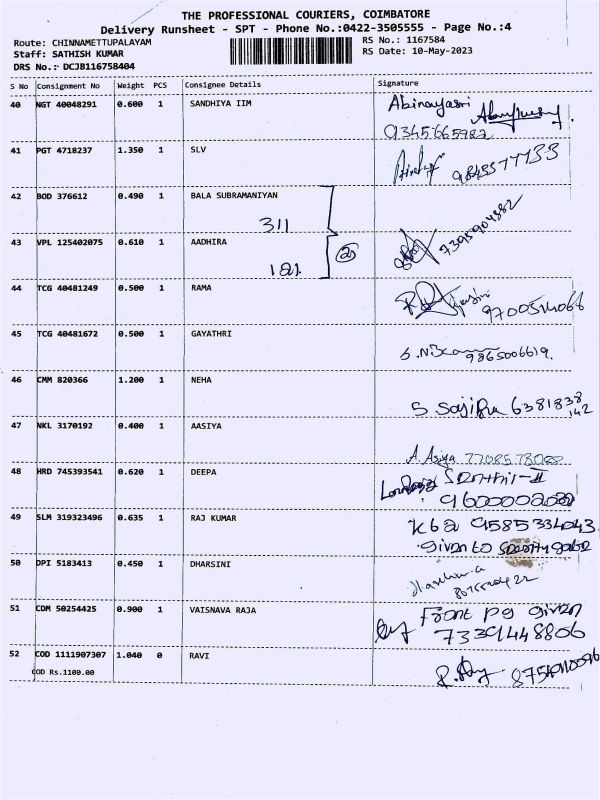 THE PROFESSIONAL COURIERS, COIMBATORE
Delivery Runsheet - SPT - Phone No.:0422-3505555 - Page No.:4
Route: CHINNAMETTUPALAYAM RS No.: 1167584
Staff: SATHISH KUMAR RS Date: 10-May-2023
DRS No.: DCJB116758404
S No Consignment No Weight PCS Consignee Details Signature
40 NGT 40048291 0.600 1 SANDHIYA IIM Abinayasri
9345665982
41 PGT 4718237 1.350 1 SLV
42 BOD 376612 0.490 1 BALA SUBRAMANIYAN
311
7395904882
43 VPL 125402075 0.610 1 AADHIRA
181
44 TCG 40481249 0.500 1 RAMA
9700514066
45 TCG 40481672 0.500 1 GAYATHRI
9865006619.
46 CMM 820366 1.200 1 NEHA
S Sajifa 6381838
142
47 NKL 3170192 0.400 1 AASIYA
A. Asiya
48 HRD 745393541 0.620 1 DEEPA
49 SLM 319323496 0.635 1 RAJ KUMAR 9585334043
given to security gate
50 DPI 5183413 0.450 1 DHARSINI
51 CDM 50254425 0.900 1 VAISNAVA RAJA Front pg given
7339448806
52 COD 1111907307 1.040 0 RAVI
COD Rs.1100.00